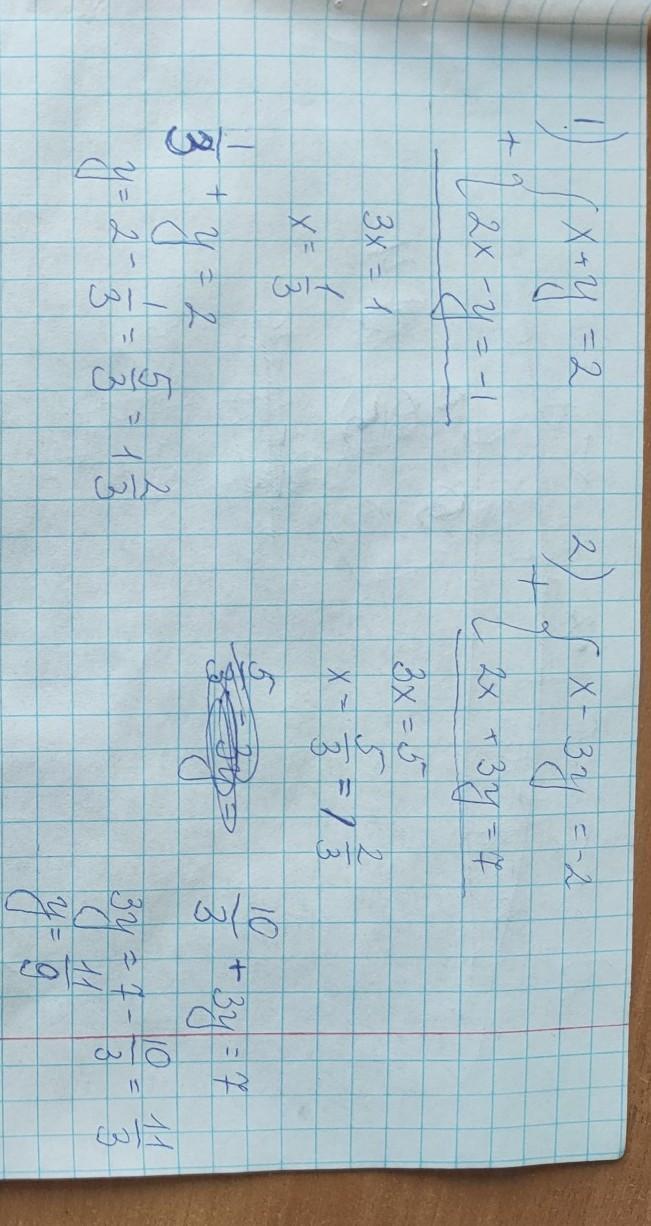 1) { x + y = 2
+ { 2x - y = -1
3x = 1
x = 1/3
1/3 + y = 2
y = 2 - 1/3 = 5/3 = 1 2/3
2) { x - 3y = -2
+ { 2x + 3y = 7
3x = 5
x = 5/3 = 1 2/3
10/3 + 3y = 7
3y = 7 - 10/3 = 11/3
y = 11/9